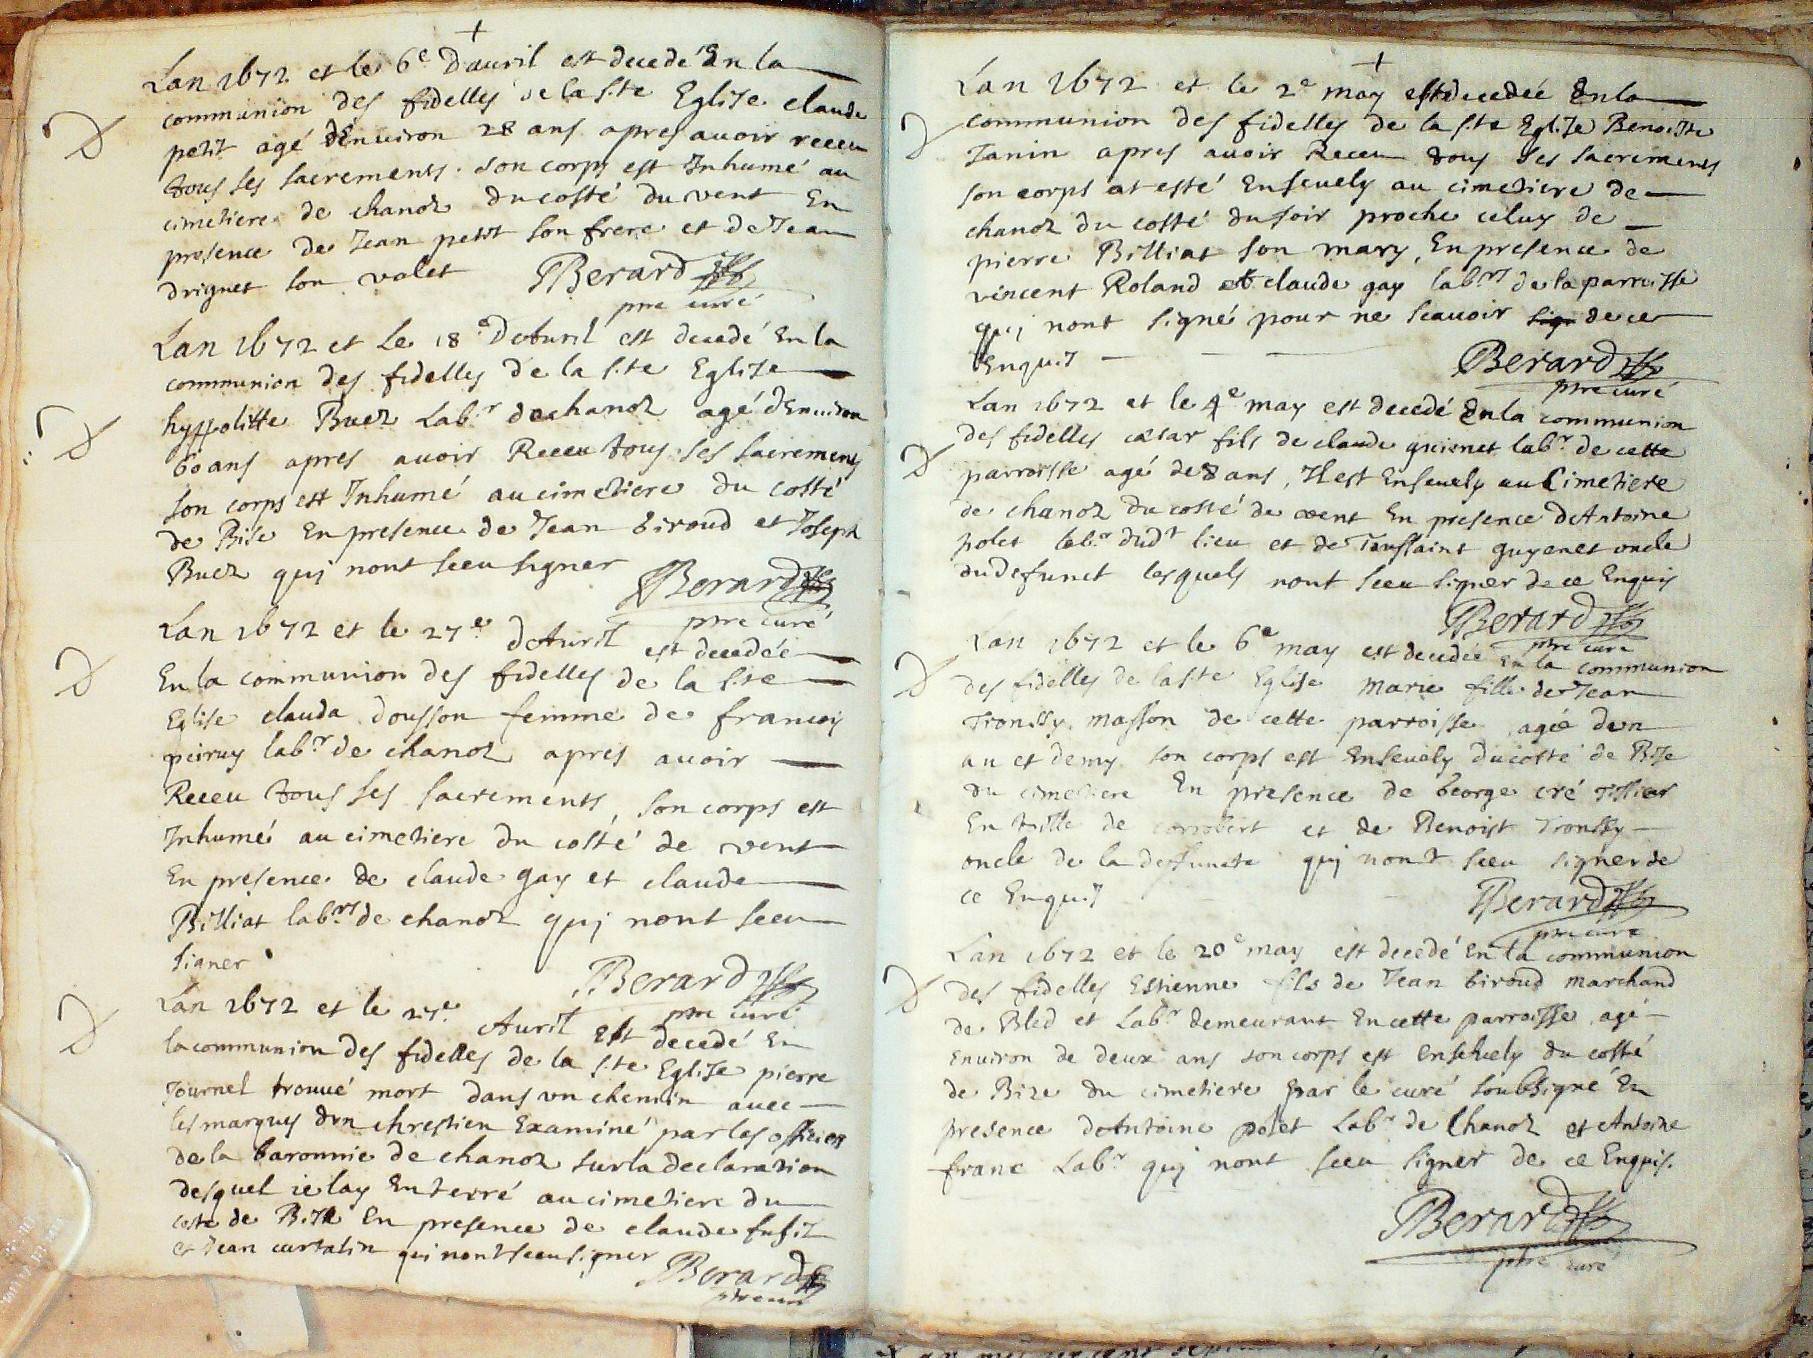 Lan 1672 et le 6e Dauril est decedé En la
communion des fidelles de la ste Eglise claude
petit agé dEnuiron 28 ans apres auoir receu
tous ses sacrements. son corps est Inhumé au
cimetiere de chanoz du costé du vent En
presence de Jean petit son frere et de Jean
drignet son valet Berard
ptre curé
Lan 1672 et Le 18e DeAuril est decedé En la
communion des fidelles de la ste Eglise
hyppolitte Buez Labr de chanoz agé dEnuiron
60 ans apres auoir Receu tous ses sacrements
son corps est Inhumé au cimetiere du costé
de Bise En presence de Jean Giroud et Joseph
Buez qui nont sceu signer Berard
ptre curé
Lan 1672 et le 27e dAuril est decedée
En la communion des fidelles de la ste
Eglise clauda dousson femme de francois
peiruy labr de chanoz apres auoir
Receu tous ses sacrements, son corps est
Inhumé au cimetiere du costé de vent
En presence de claude gay et claude
Billiat labrs de chanoz qui nont sceu
signer Berard
ptre curé
Lan 1672 et le 27e Auril est decedé En
la communion des fidelles de la ste Eglise pierre
Journel trouué mort dans vn chemin auec
les marques dvn chrestien Examiné par les officiers
de la baronnie de chanoz sur la declaration
desquel ie lay Enterré au cimetiere du
costé de Bise En presence de claude fusit
et Jean curtalin qui nont sceu signer Berard
ptre curé
Lan 1672 et le 2e may est decedée En la
communion des fidelles de la ste Eglise Benoiste
Janin apres auoir Receu tous ses sacrements
son corps at esté Enseuely au cimetiere de
chanoz du costé du soir proche celuy de
pierre Billiat son mary, En presence de
vincent Roland et claude gay labrs de la parroisse
qui nont signé pour ne scauoir sig de ce
Enquis Berard
ptre curé
Lan 1672 et le 4e may est decedé En la communion
des fidelles cæsar fils de claude guienet labr de cette
parroisse agé de 8 ans, Il est Enseuely au Cimetiere
de chanoz du costé de vent En presence dAntoine
polet labr dudt lieu et de Toussaint guyenet oncle
du defunct lesquels nont sceu signer de ce Enquis
Berard
ptre curé
Lan 1672 et le 6e may est decedée En la communion
des fidelles de la ste Eglise marie fille de Jean
Tronssy masson de cette parroisse agée dun
an et demy son corps est Enseuely du costé de Bise
du cimetiere En presence de George cré tissier
En toille de et de Benoist Tronssy
oncle de la deffuncte qui nont sceu signer de
ce Enquis Berard
ptre curé
Lan 1672 et le 20e may est decedé En la communion
des fidelles Estienne fils de Jean Giroud marchand
de Bled et Labr demeurant En cette parroisse agé
Enuiron de deux ans son corps est enseuely du costé
de Bize du cimetiere par le curé soubsigné En
presence dAntoine polet Labr de Chanoz et Antoine
franc Labr qui nont sceu signer de ce Enquis.
Berard
ptre curé